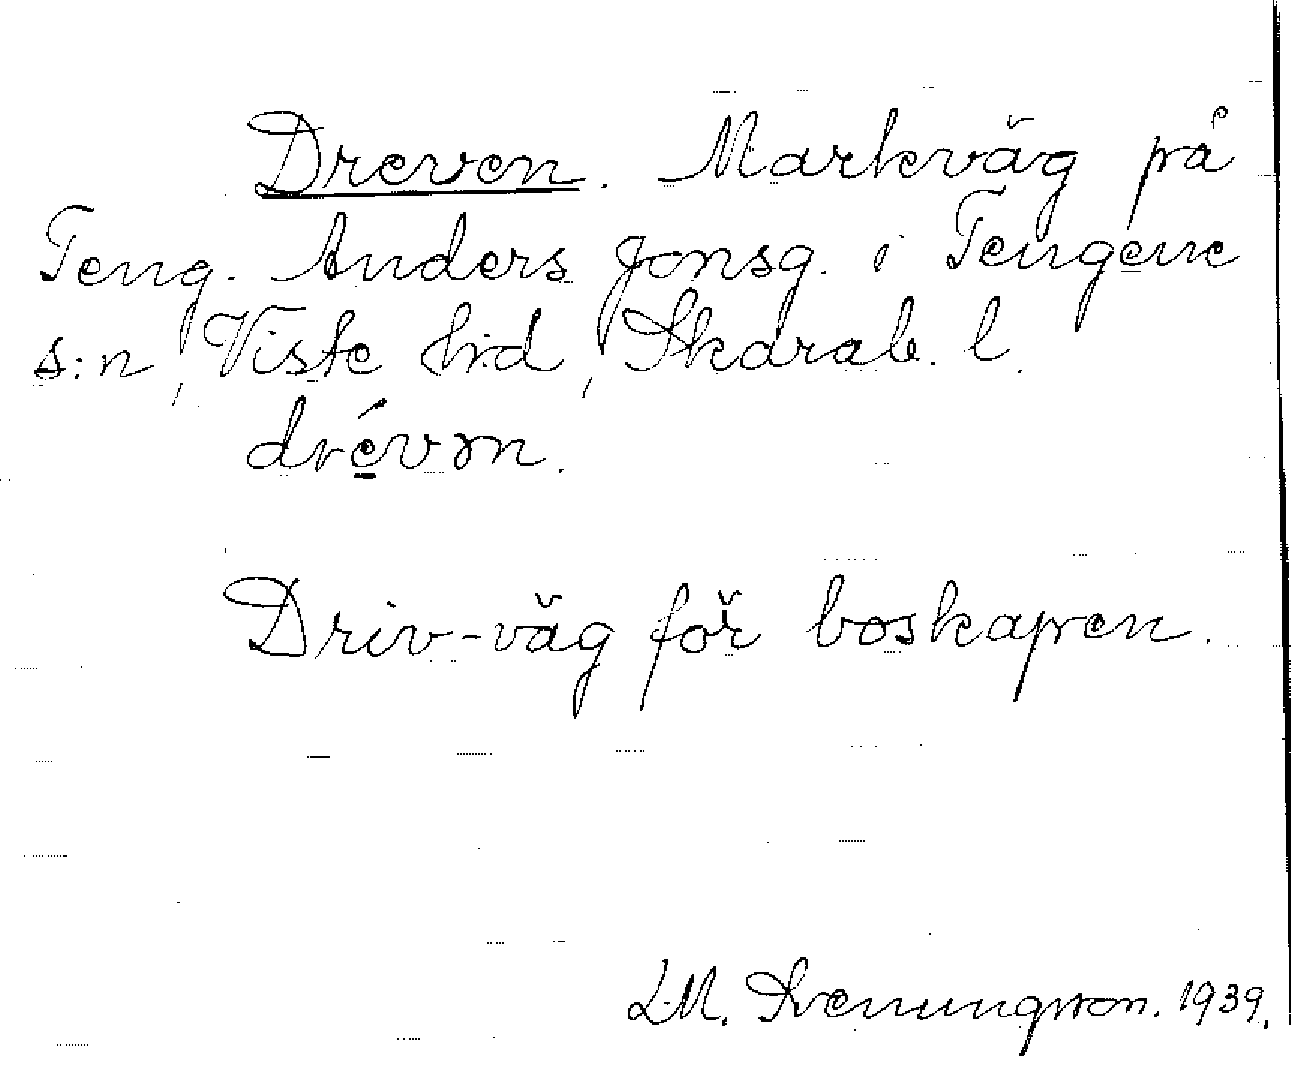 Dreven. Markväg på
Teng. Anders Jonsg. i Tengene
s:n, Viste hd, Skarab. l.
drévən.
Driv-väg för boskapen.
L.M. Svenungsson. 1939.